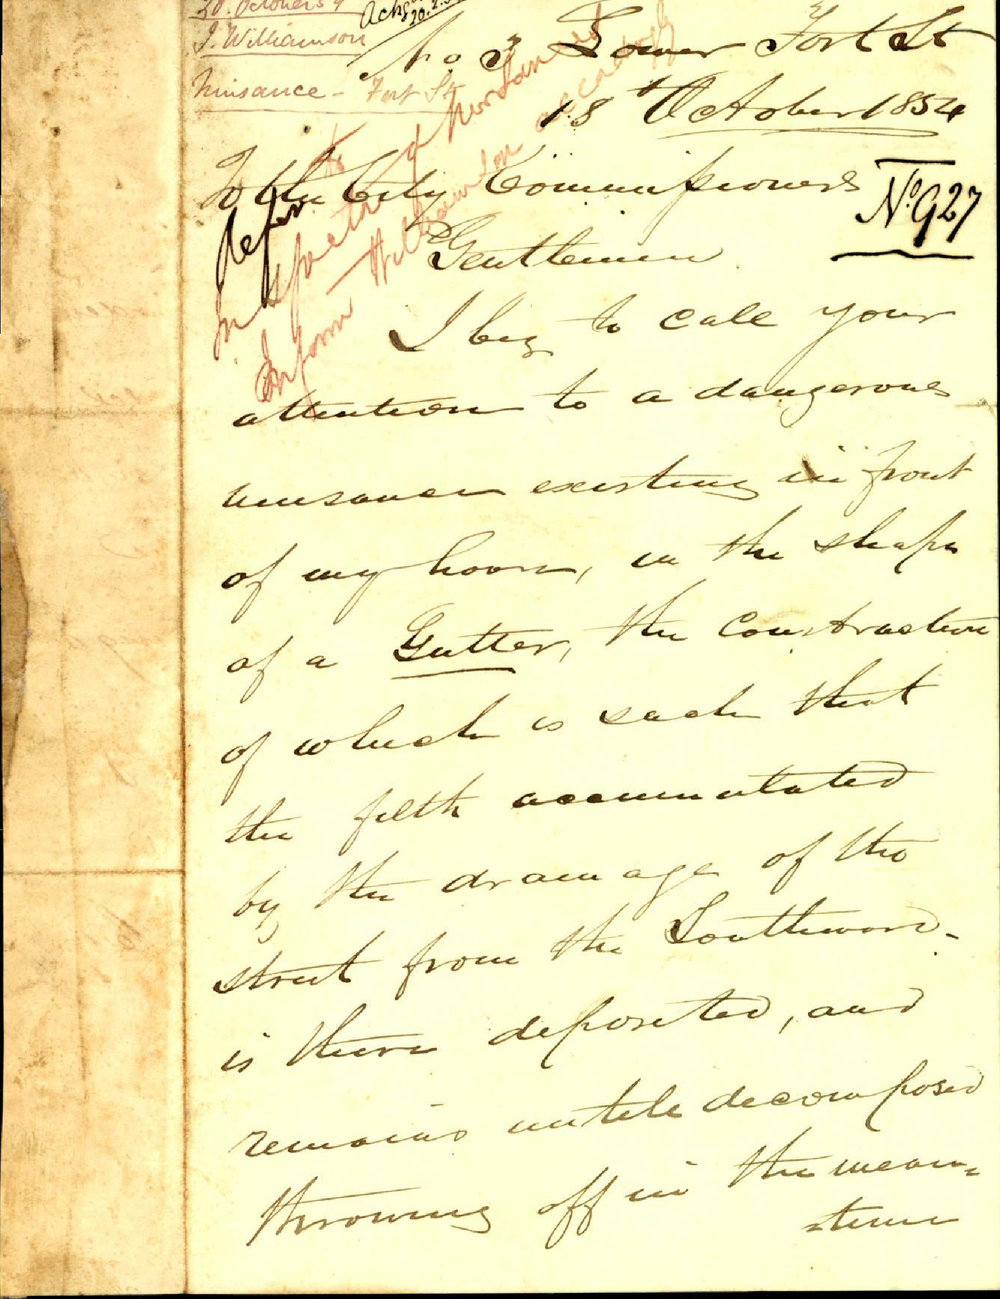 20. October 54
J. Williamson
Nuisance - Fort St
No 3 Lower Fort St
18th October 1854
To the City Commissioners
No 927
Gentlemen
Refer to
Inspector of
Inform Williamson accordingly
I beg to call your
attention to a dangerous
nuisance existing in front
of my house, in the shape
of a Gutter, the construction
of which is such that
the filth accumulated
by the drainage of the
street from the Southward
is there deposited, and
remains untill decomposed
throwing off in the mean-
-time